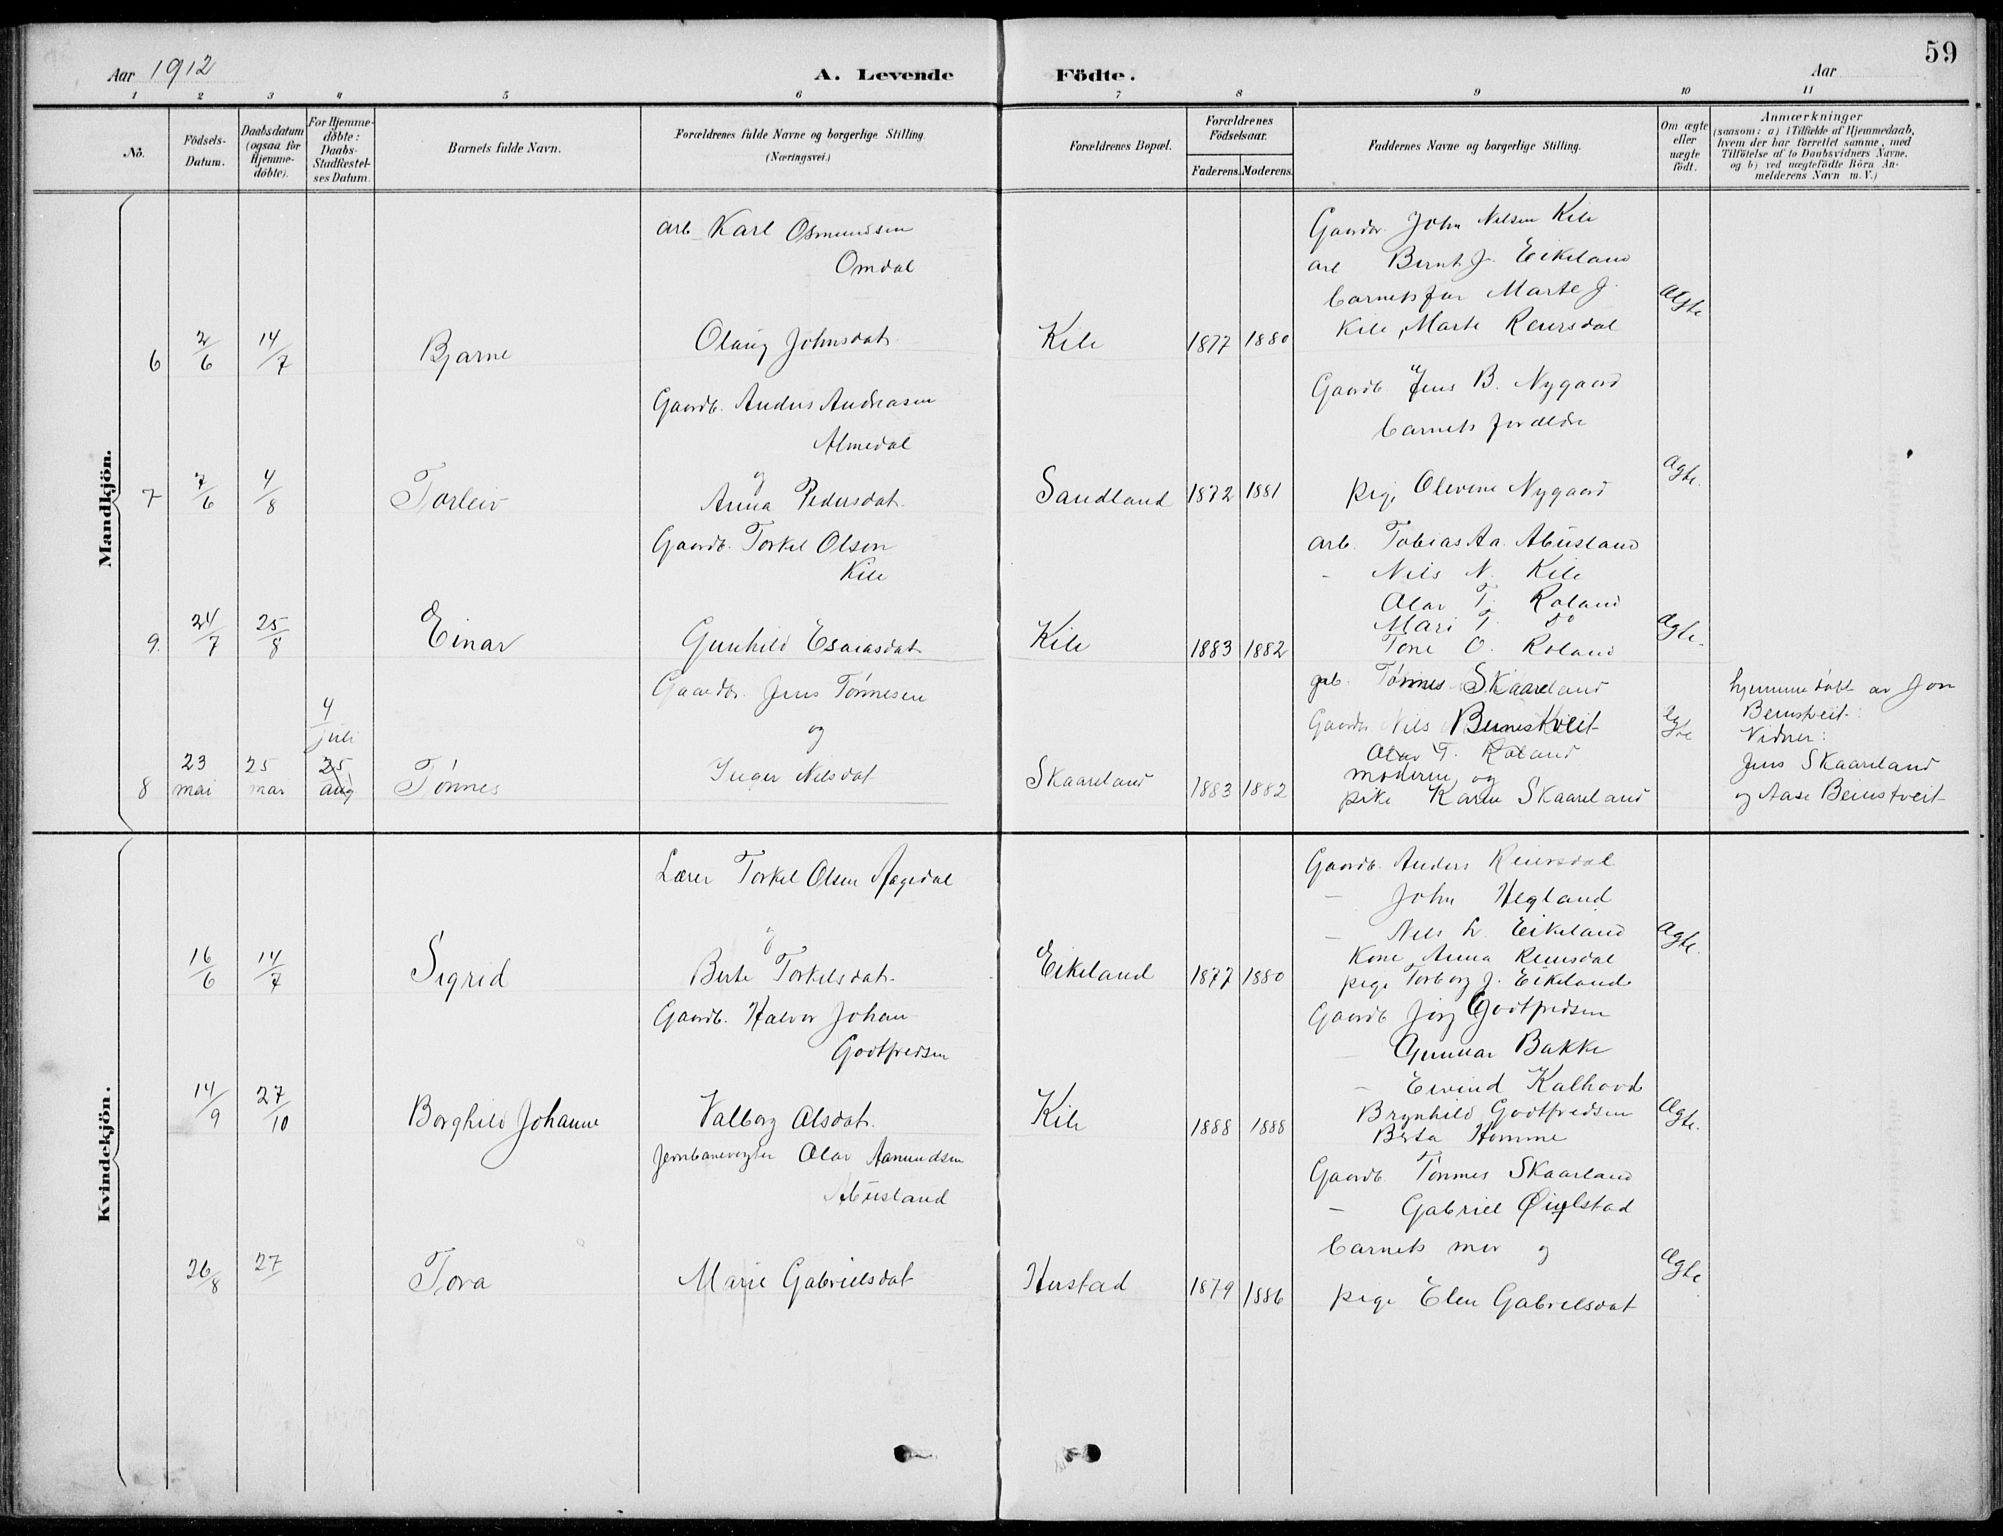 59
Aar 1912 A. Levende Födte. Aar
1 2 3 4 5 6 7 8 9 10 11
No.
Födsels-Datum.
Daabsdatum (ogsaa for Hjemme-döbte).
For Hjemme-döbte: Daabs-Stadfæstel-ses Datum.
Barnets fulde Navn.
Forældrenes fulde Navne og borgerlige Stilling.
(Næringsvei.)
Forældrenes Bopæl.
Forældrenes Födselsaar.
Faderens. Moderens.
Faddernes Navne og borgerlige Stilling.
Om ægte eller uægte födt.
Anmærkninger
(saasom: a) i Tilfælde af Hjemmedaab,
hvem der har forrettet samme, med
Tilföielse af to Daabsvidners Navne,
og b) ved uægtefödte Börn An-
melderens Navn m. V.)
Mandkjön.
6 2/6 14/7 Bjarne
arb Karl Osmundsen
Omdal
Olaug Johnsdat.
Kile 1877 1880
Gaardbr. John Nilsen Kile
arb Bernt J. Eikeland
barnets far Marte J.
Kile, Marte Reiersdal
Ægte
7 7/6 4/8 Torleiv
Gaardb. Anders Andreasen
Almedal
og
Anna Pedersdat.
Sandland 1872 1881
Gaardb. Jens B. Nygaard
barnets foreldre
pige Olevine Nygaard
Ægte.
9. 24/7 25/8 Einar
Gaardb. Torkel Olson
Kile
Gunhild Esaiasdat
Kile 1883 1882
arb. Tobias Aa. Abusland
- Nils N. Kile
Olav T. Roland
Mari T. do
Tone O. Roland
Ægte.
8 23 mai 25 mai 4 juli 25 aug Tønnes
Gaardbr. Jens Tønnesen
og
Inger Nilsdat
Skaareland 1883 1882
Tønnes Skaareland
Gaardbr Nils Beinestveit
Olav T. Roland
moderen og
pike Karen Skaareland
Ægte
hjemmedøbt av Jon
Beinstveit.
Vidner:
Jens Skaareland
og Aase Beinstveit
Kvindekjön.
16/6 14/7 Sigrid
Lærer Torkel Olsen Aagedal
og
Berte Torkelsdat.
Eikeland 1877 1880
Gaardb. Anders Reiersdal
- John Hegland
- Nils L. Eikeland
Kone Anna Reiersdal
pige Torborg J. Eikeland
Ægte.
14/9 27/10 Borghild Johanne
Gaardb. Halvor Johan
Godtfredsen
Valborg Olsdat.
Kile 1888 1888
Gaardb Jørg Godtfredsen
- Gunnar Bakke
- Eivind Kalhovd
Brynhild Godtfredsen
Berta Homme
Ægte.
26/8 27/ Tora
Jernbanevogter Olav Aamundsen
Abusland
Marie Gabrielsdat
Hustad 1879 1886
Gaardb. Tønnes Skaarland
- Gabriel Øiulstad
barnets mor og
pige Elen Gabrielsdat
Ægte.